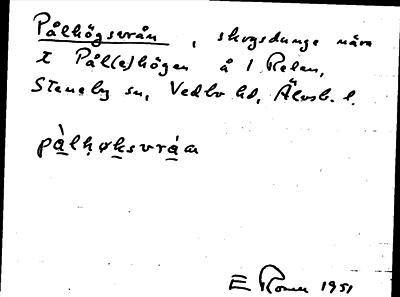 Pålhögsvrån, skogsdunge nära
t Pål(s)högen å 1 Relan,
Steneby sn, Vedbo hd, Älvsb. l.
pàlhøksvrán
E 1951